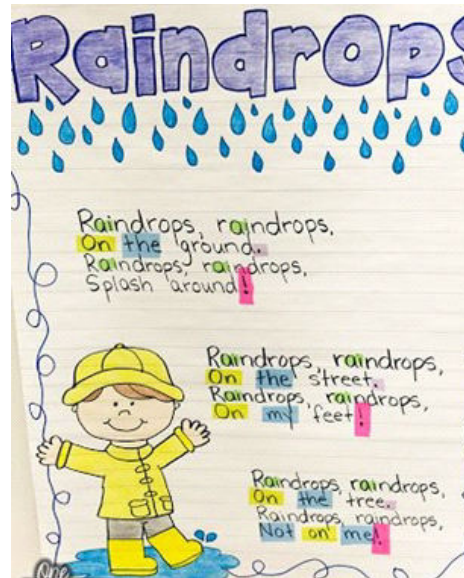 Raindrops
Raindrops, raindrops,
On the ground.
Raindrops, raindrops,
Splash around!
Raindrops, raindrops,
On the street.
Raindrops, raindrops,
On my feet!
Raindrops, raindrops,
On the tree.
Raindrops, raindrops,
Not on me!